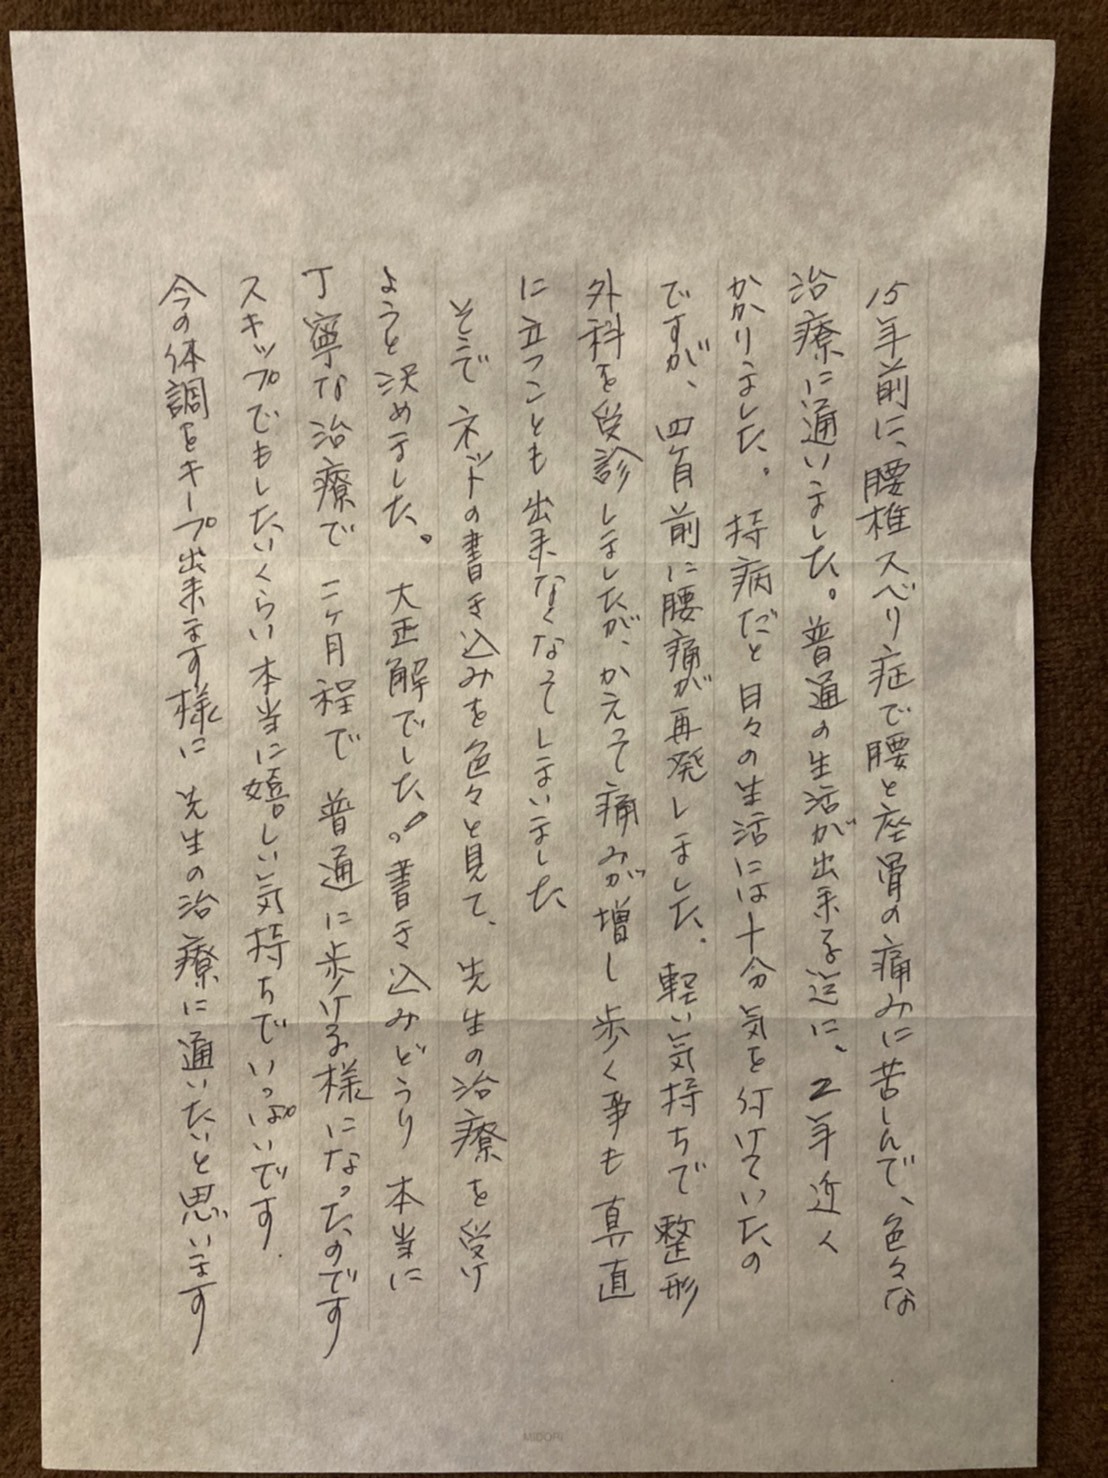 15年前に、腰椎スベリ症で腰と座骨の痛みに苦しんで、色々な
治療に通いました。普通の生活が出来る迄に、2年近く
かかりました。持病だと日々の生活には十分気を付けていたの
ですが、四ヶ月前に腰痛が再発しました。軽い気持ちで整形
外科を受診しましたが、かえって痛みが増し歩く事も真直
に立つことも出来なくなってしまいました
そこでネットの書き込みを色々と見て、先生の治療を受け
ようと決めました。大正解でした!。書き込みどうり本当に
丁寧な治療で二ヶ月程で普通に歩ける様になったのです
スキップでもしたいくらい本当に嬉しい気持ちでいっぱいです.
今の体調をキープ出来ます様に先生の治療に通いたいと思います
MIDORI